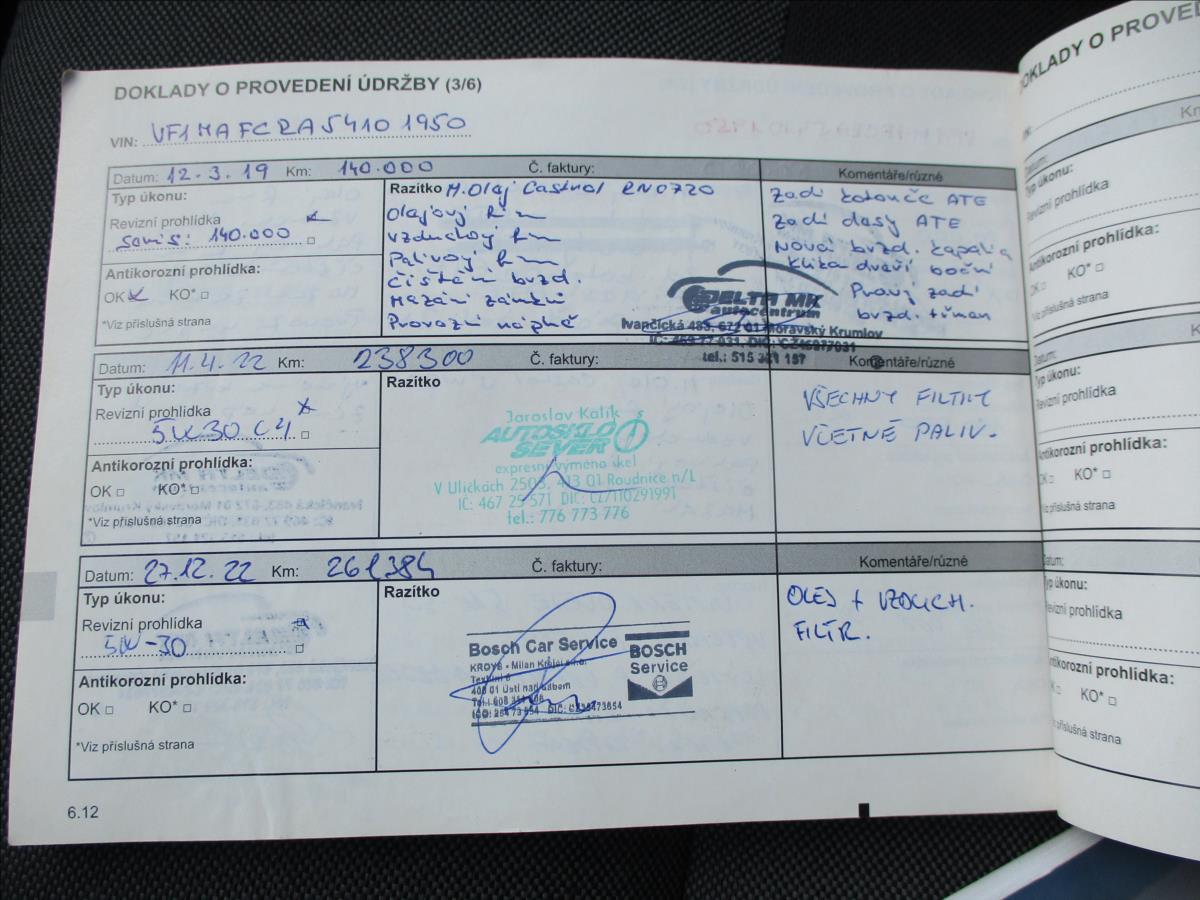 DOKLADY O PROVEDENÍ ÚDRŽBY (3/6)
VIN: VF1MAFCRA54101950
Datum: 12.3.19 Km: 140.000 Č. faktury: Komentáře/různé
Typ úkonu:
Revizní prohlídka
servis: 140.000
Antikorozní prohlídka:
OK KO*
*Viz příslušná strana
Razítko M.Olej Castrol RN0720
Olejový
Vzduchový
Palivový
čištění brzd.
Mazání zámků
Provozní náplně
Zadí kotouče ATE
Zadí desy ATE
Nová brzd. kapalina
boční
Pravý zadí
brzd. třmen
DELTA MK
autocentrum
Ivančická 483, 672 01 Moravský Krumlov
tel.: 515 321 157
Datum: 11.4.22 Km: 238300 Č. faktury: Komentáře/různé
Typ úkonu:
Revizní prohlídka
5W30 C4
Antikorozní prohlídka:
OK KO*
*Viz příslušná strana
Razítko
Jaroslav Kalik
AUTOSKLO
SEVER
expresní výměna skel
V Uličkách 2503, 413 01 Roudnice n/L
IČ: 467 25 571 DIČ: CZ7110291991
tel.: 776 773 776
VŠECHNY FILTRY
VČETNĚ PALIV.
Datum: 27.12.22 Km: 261384 Č. faktury: Komentáře/různé
Typ úkonu:
Revizní prohlídka
5W-30
Antikorozní prohlídka:
OK KO*
*Viz příslušná strana
Razítko
Bosch Car Service
BOSCH
Service
KROYS - Milan
Ústí nad Labem
OLEJ + VZDUCH.
FILTR.
6.12
DOKLADY O PROVEDE
Datum:
Typ úkonu:
Revizní prohlídka
Antikorozní prohlídka:
KO*
příslušná strana
Datum:
Typ úkonu:
Revizní prohlídka
Antikorozní prohlídka:
KO*
příslušná strana
Datum:
Typ úkonu:
Revizní prohlídka
Antikorozní prohlídka:
KO*
příslušná strana